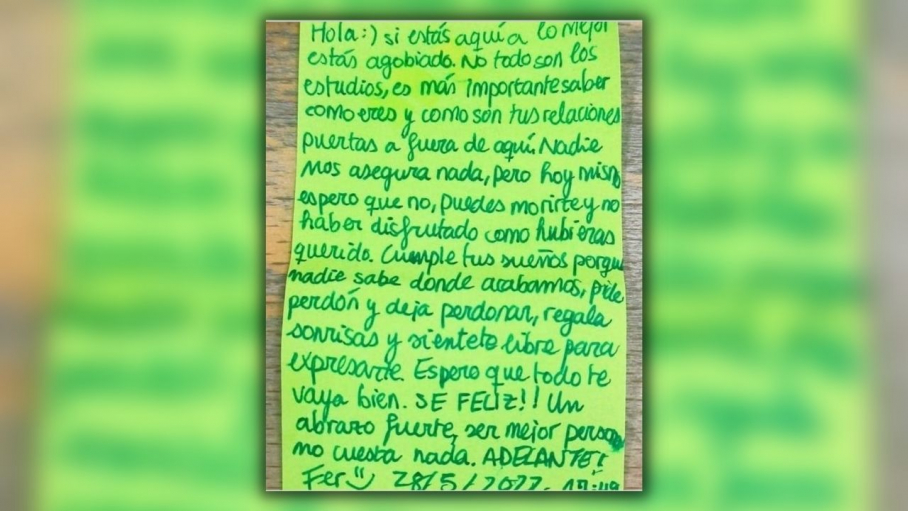 Hola:) si estás aquí a lo mejor
estás agobiado. No todo son los
estudios, es más importante saber
como eres y como son tus relaciones
puertas a fuera de aquí. Nadie
nos asegura nada, pero hoy mismo
espero que no, puedes morirte y no
haber disfrutado como hubieras
querido. Cumple tus sueños porque
nadie sabe donde acabamos, pide
perdón y deja perdonar, regala
sonrisas y sientete libre para
expresarte. Espero que todo te
vaya bien. SE FELIZ!! Un
abrazo fuerte, ser mejor persona
no cuesta nada. ADELANTE!
Fer 28/5/2022.